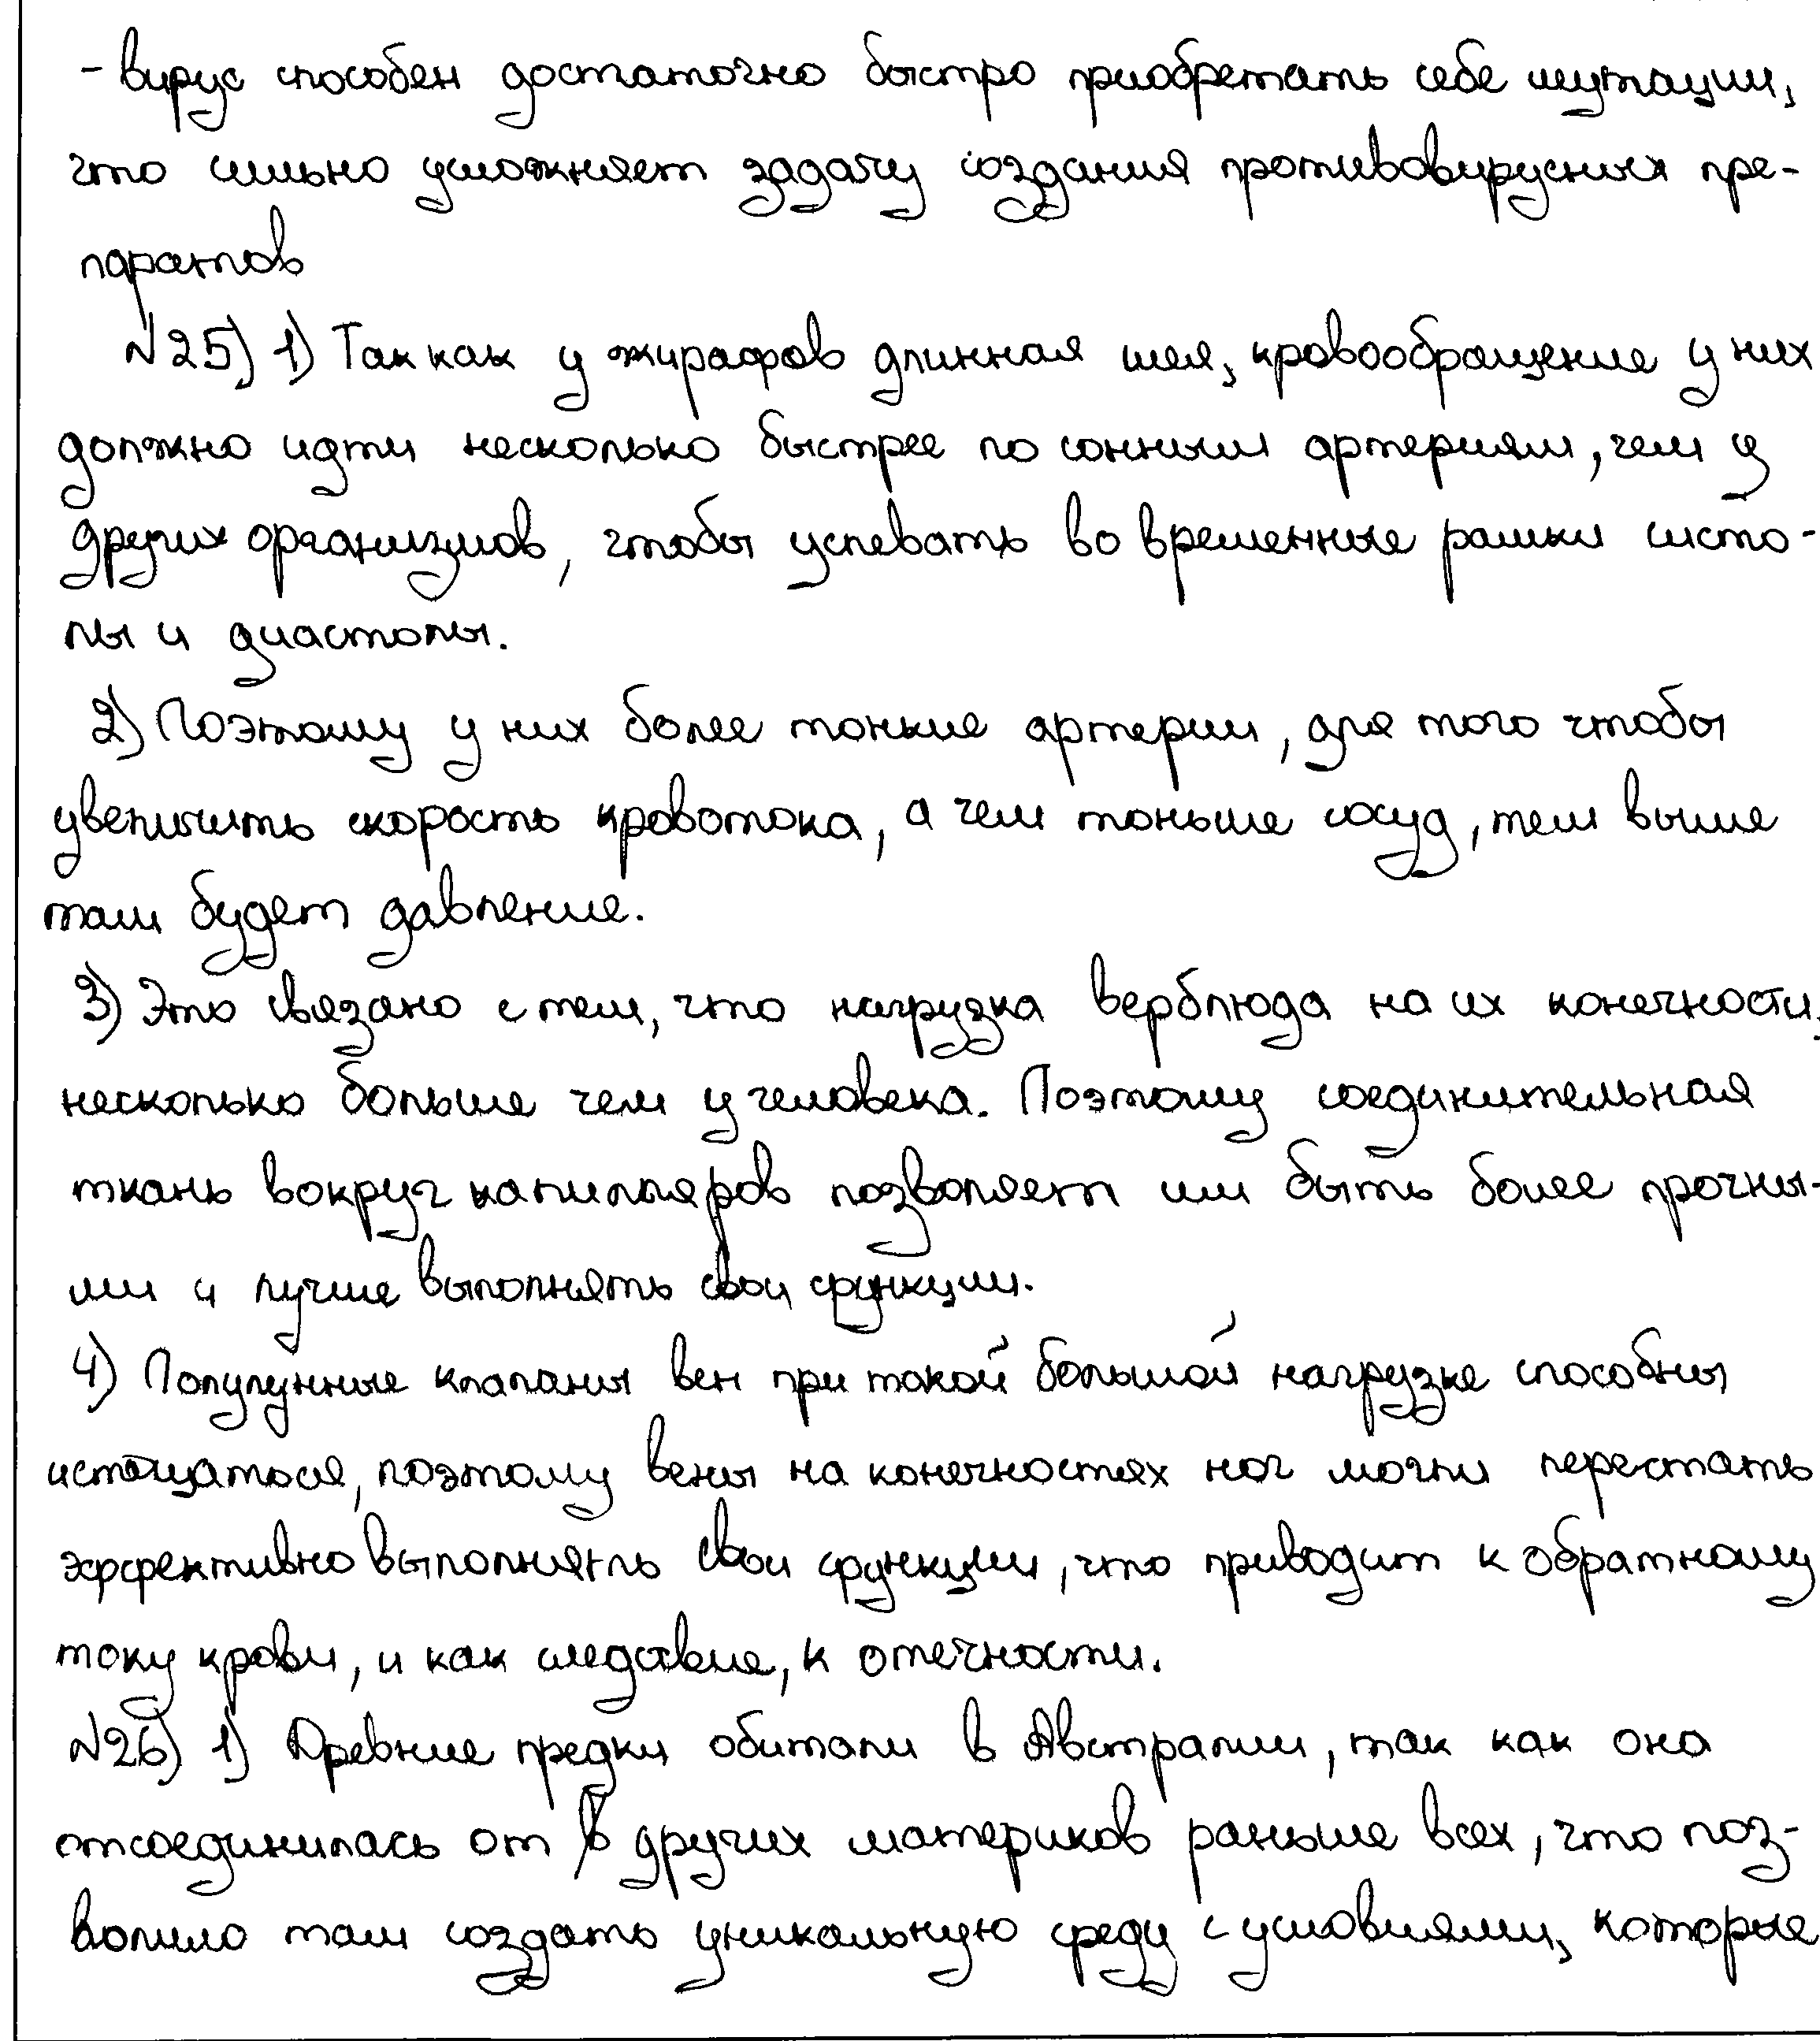 - вирус способен достаточно быстро приобретать себе мутации,
что сильно усложняет задачу создания противовирусных пре-
паратов
N25) 1) Так как у жирафов длинная шея, кровообращение у них
должно идти несколько быстрее по сонным артериям, чем у
других организмов, чтобы успевать во временные рамки систо-
лы и диастолы.
2) Поэтому у них более тонкие артерии, для того чтобы
увеличить скорость кровотока, а чем тоньше сосуд, тем выше
там будет давление.
3) Это связано с тем, что нагрузка верблюда на их конечности,
несколько больше чем у человека. Поэтому соединительная
ткань вокруг капилляров позволяет им быть более прочны-
ми и лучше выполнять свои функции.
4) Полулунные клапаны вен при такой большой нагрузке способны
истощаться, поэтому вены на конечностях ног могли перестать
эффективно выполнять свои функции, что приводит к обратному
току крови, и как следствие, к отечности.
N26) 1) Древние предки обитали в Австралии, так как она
отсоединилась от других материков раньше всех, что поз-
волило там создать уникальную среду с условиями, которые